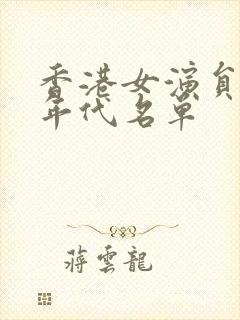 香港女演員
年代名單
蔣雲龍